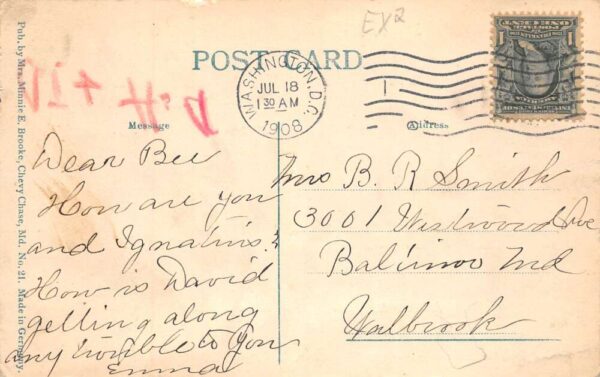 Pub. by Mrs. Minnie E. Brooke, Chevy Chase, Md. No. 21. Made in Germany.
EX2
POST CARD
WASHINGTON, D.C.
JUL 18
1 30 AM
1908
1
1
Message
Address
Dear Bee
How are you
and Ignatius &
How is David
getting along
any trouble to you
Emma
Mrs B. R Smith
3001 Westwood Ave
Baltimoo Md
Walbrook